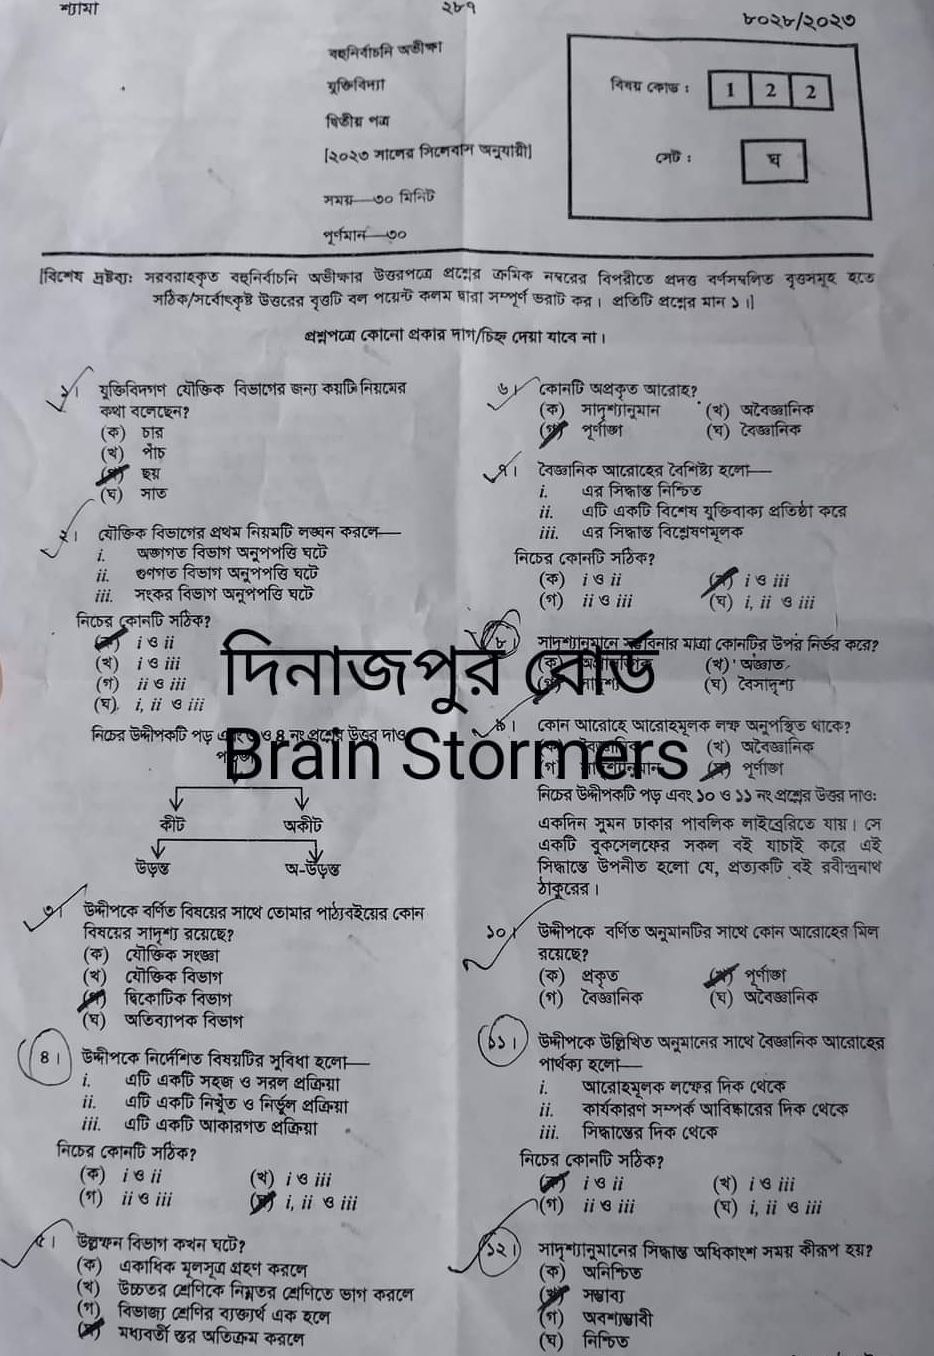 শ্যামা
২৮৭
৮০২৮/২০২৩
বহুনির্বাচনি অভীক্ষা
যুক্তিবিদ্যা
দ্বিতীয় পত্র
[২০২৩ সালের সিলেবাস অনুযায়ী]
সময়—৩০ মিনিট
পূর্ণমান—৩০
বিষয় কোড : 1 2 2
সেট : ঘ
[বিশেষ দ্রষ্টব্য: সরবরাহকৃত বহুনির্বাচনি অভীক্ষার উত্তরপত্রে প্রশ্নের ক্রমিক নম্বরের বিপরীতে প্রদত্ত বর্ণসম্বলিত বৃত্তসমূহ হতে
সঠিক/সর্বোৎকৃষ্ট উত্তরের বৃত্তটি বল পয়েন্ট কলম দ্বারা সম্পূর্ণ ভরাট কর। প্রতিটি প্রশ্নের মান ১।]
প্রশ্নপত্রে কোনো প্রকার দাগ/চিহ্ন দেয়া যাবে না।
১। যুক্তিবিদগণ যৌক্তিক বিভাগের জন্য কয়টি নিয়মের
কথা বলেছেন?
(ক) চার
(খ) পাঁচ
(গ) ছয়
(ঘ) সাত
২। যৌক্তিক বিভাগের প্রথম নিয়মটি লঙ্ঘন করলে—
i. অঙ্গগত বিভাগ অনুপপত্তি ঘটে
ii. গুণগত বিভাগ অনুপপত্তি ঘটে
iii. সংকর বিভাগ অনুপপত্তি ঘটে
নিচের কোনটি সঠিক?
(ক) i ও ii
(খ) i ও iii
(গ) ii ও iii
(ঘ) i, ii ও iii
নিচের উদ্দীপকটি পড় এবং ৩ ও ৪ নং প্রশ্নের উত্তর দাও
কীট অকীট
উড়ন্ত অ-উড়ন্ত
৩। উদ্দীপকে বর্ণিত বিষয়ের সাথে তোমার পাঠ্যবইয়ের কোন
বিষয়ের সাদৃশ্য রয়েছে?
(ক) যৌক্তিক সংজ্ঞা
(খ) যৌক্তিক বিভাগ
(গ) দ্বিকোটিক বিভাগ
(ঘ) অতিব্যাপক বিভাগ
৪। উদ্দীপকে নির্দেশিত বিষয়টির সুবিধা হলো—
i. এটি একটি সহজ ও সরল প্রক্রিয়া
ii. এটি একটি নিখুঁত ও নির্ভুল প্রক্রিয়া
iii. এটি একটি আকারগত প্রক্রিয়া
নিচের কোনটি সঠিক?
(ক) i ও ii (খ) i ও iii
(গ) ii ও iii (ঘ) i, ii ও iii
৫। উল্লম্ফন বিভাগ কখন ঘটে?
(ক) একাধিক মূলসূত্র গ্রহণ করলে
(খ) উচ্চতর শ্রেণিকে নিম্নতর শ্রেণিতে ভাগ করলে
(গ) বিভাজ্য শ্রেণির ব্যক্ত্যর্থ এক হলে
(ঘ) মধ্যবর্তী স্তর অতিক্রম করলে
৬। কোনটি অপ্রকৃত আরোহ?
(ক) সাদৃশ্যানুমান (খ) অবৈজ্ঞানিক
(গ) পূর্ণাঙ্গ (ঘ) বৈজ্ঞানিক
৭। বৈজ্ঞানিক আরোহের বৈশিষ্ট্য হলো—
i. এর সিদ্ধান্ত নিশ্চিত
ii. এটি একটি বিশেষ যুক্তিবাক্য প্রতিষ্ঠা করে
iii. এর সিদ্ধান্ত বিশ্লেষণমূলক
নিচের কোনটি সঠিক?
(ক) i ও ii (খ) i ও iii
(গ) ii ও iii (ঘ) i, ii ও iii
৮। সাদৃশ্যানুমানে সম্ভাবনার মাত্রা কোনটির উপর নির্ভর করে?
(ক) (খ) অজ্ঞাত
(গ) সাদৃশ্য (ঘ) বৈসাদৃশ্য
৯। কোন আরোহে আরোহমূলক লম্ফ অনুপস্থিত থাকে?
(ক) বৈজ্ঞানিক (খ) অবৈজ্ঞানিক
(গ) সাদৃশ্যানুমান (ঘ) পূর্ণাঙ্গ
নিচের উদ্দীপকটি পড় এবং ১০ ও ১১ নং প্রশ্নের উত্তর দাও:
একদিন সুমন ঢাকার পাবলিক লাইব্রেরিতে যায়। সে
একটি বুকসেলফের সকল বই যাচাই করে এই
সিদ্ধান্তে উপনীত হলো যে, প্রত্যেকটি বই রবীন্দ্রনাথ
ঠাকুরের।
১০। উদ্দীপকে বর্ণিত অনুমানটির সাথে কোন আরোহের মিল
রয়েছে?
(ক) প্রকৃত (খ) পূর্ণাঙ্গ
(গ) বৈজ্ঞানিক (ঘ) অবৈজ্ঞানিক
১১। উদ্দীপকে উল্লিখিত অনুমানের সাথে বৈজ্ঞানিক আরোহের
পার্থক্য হলো—
i. আরোহমূলক লম্ফের দিক থেকে
ii. কার্যকারণ সম্পর্ক আবিষ্কারের দিক থেকে
iii. সিদ্ধান্তের দিক থেকে
নিচের কোনটি সঠিক?
(ক) i ও ii (খ) i ও iii
(গ) ii ও iii (ঘ) i, ii ও iii
১২। সাদৃশ্যানুমানের সিদ্ধান্ত অধিকাংশ সময় কীরূপ হয়?
(ক) অনিশ্চিত
(খ) সম্ভাব্য
(গ) অবশ্যম্ভাবী
(ঘ) নিশ্চিত
দিনাজপুর বোর্ড
Brain Stormers